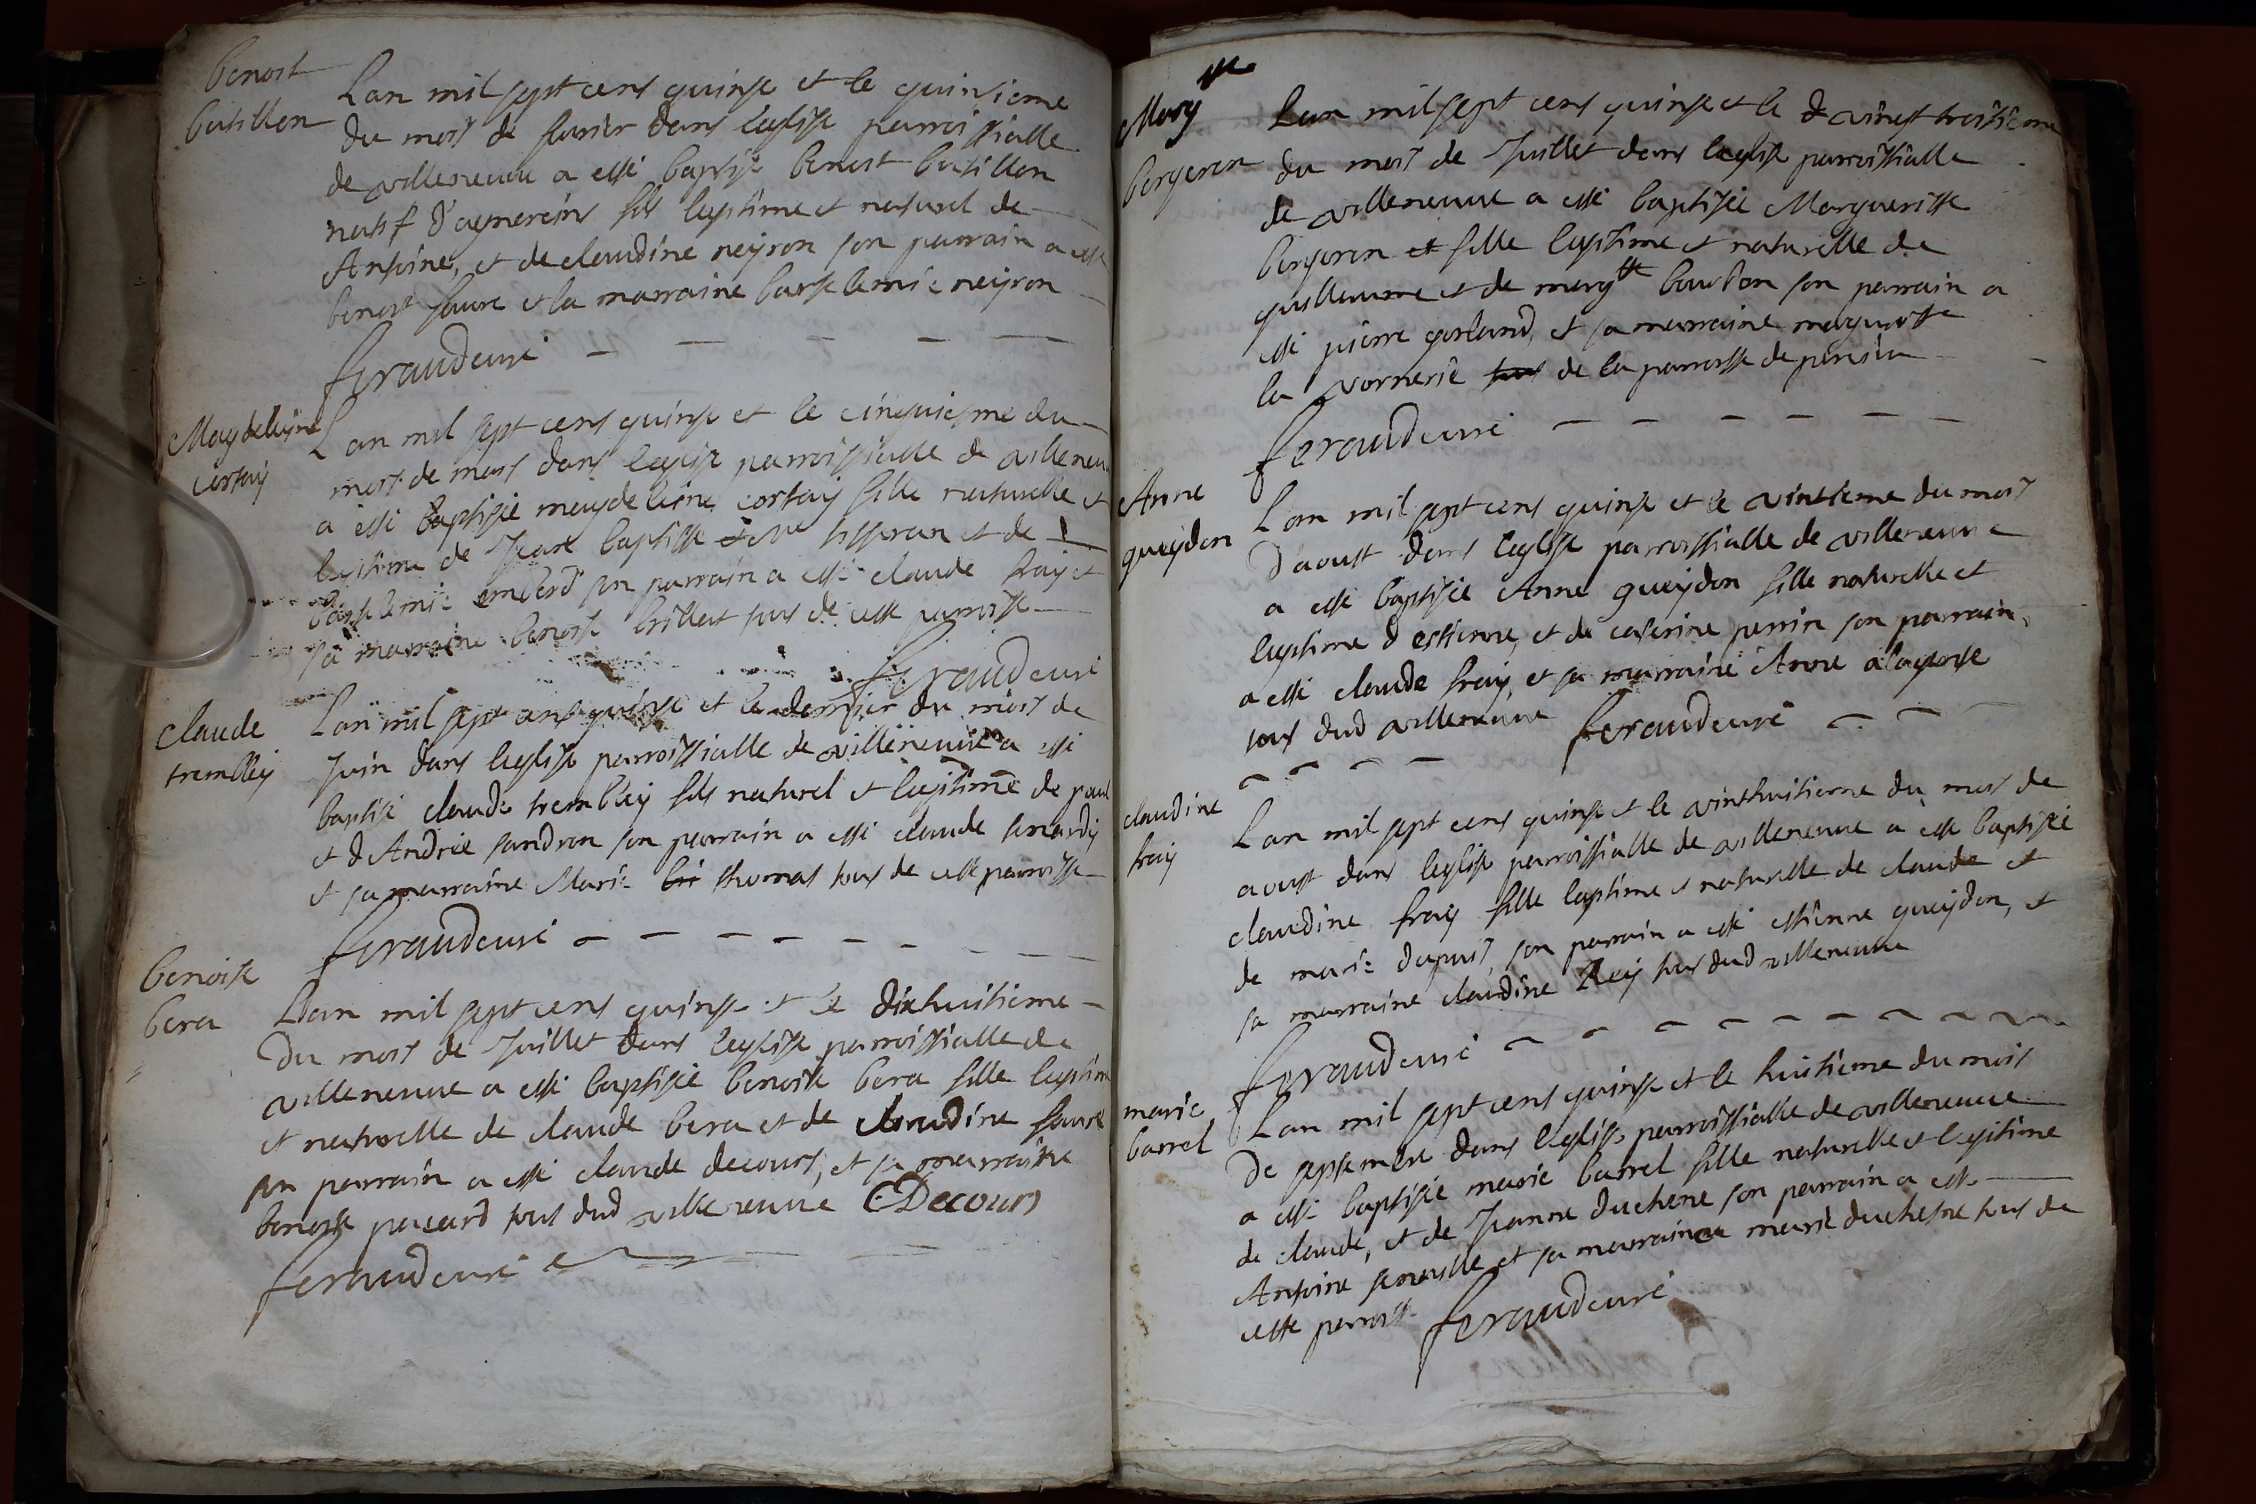 benoist
batillon
Lan mil sept cens quinse et le quinsieme
du mois de fevrier dans leglise parroissialle
de villeneuve a esté baptisé benoist batillon
natif d'agnereins fils legitime et naturel de
Antoine, et de claudine neyron son parrain a esté
benoist favre et la marraine bartelemie neyron
feraud curé
Magdelleine
cortay
Lan mil sept cens quinse et le cinquiesme du
mois de mars dans leglise parroissialle de villeneu
a esté baptisée magdeleine cortay fille naturelle et
legitime de Jean baptiste tisseran et de
bartelemie son parrain a esté claude fray et
sa marraine benoiste brillat tous de cette parroisse
feraud curé
claude
trembley
Lan mil sept cens quinse et le dernier du mois de
Juin dans leglise parroissialle de villeneuve a esté
baptisé claude trembley fils naturel et legitime de paul
et d Andrée sandron son parrain a esté claude
et sa marraine Marie thomas tous de cette parroisse
feraud curé
benoiste
bera
Lan mil sept cens quinse et le dixhuitieme
Du mois de Juillet dans leglise parroissialle de
villeneuve a esté baptisée benoiste bera fille legitime
et naturelle de claude bera et de claudine favre
son parrain a esté claude decours, et sa marraine
benoiste pacard tous dud villeneuve CDecours
feraud curé
Margtte
bergeron
Lan mil sept cens quinse et le d vingt troisieme
du mois de Juillet dans leglise parroissialle
de villeneuve a esté baptisée Margueritte
bergeron et fille legitime et naturelle de
guillaume et de margtte bourdon son parrain a
esté pierre gorland, et sa marraine marguitte
la vornerie tous de la parroisse de
feraud curé
Anne
gueydon
Lan mil sept cens quinse et le vintieme du mois
D'aoust dans leglise parroissialle de villeneuve
a esté baptisée Anne gueydon fille naturelle et
legitime d estienne, et de caterine perrin son parrain
a esté claude fray, et sa marraine Anne
tous dud villeneuve feraud curé
claudine
fray
Lan mil sept cens quinse et le vinthuitieme du mois de
aoust dans leglise parroissialle de villeneuve a esté baptisée
claudine fray fille legitime et naturelle de claude et
de marie dupuis, son parrain a esté estienne gueydon, et
sa marraine claudine Rey tous dud villeneuve
feraud curé
marie
barrel
Lan mil sept cens quinse et le huitieme du mois
De septembre dans leglise parroissialle de villeneuve
a esté baptisée marie barrel fille naturelle et legitime
de claude, et de Jeanne duchene son parrain a esté
Antoine et sa marraine marie duchesne tous de
cette parroisse feraud curé